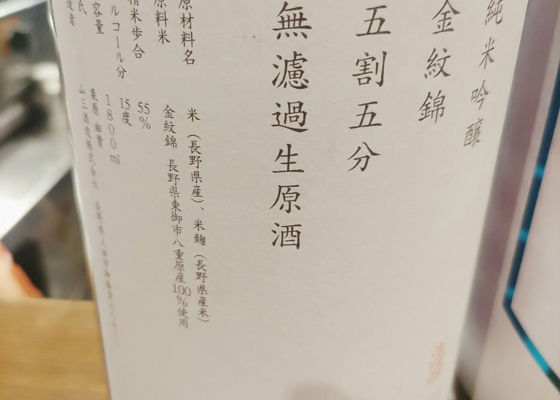 純米吟醸
金紋錦
五割五分
無濾過生原酒
原材料名 米（長野県産）、米麹（長野県産米）
原料米 金紋錦 長野県東御市八重原産100%使用
精米歩合 55%
アルコール分 15度
容量 1800ml
山三酒造株式会社